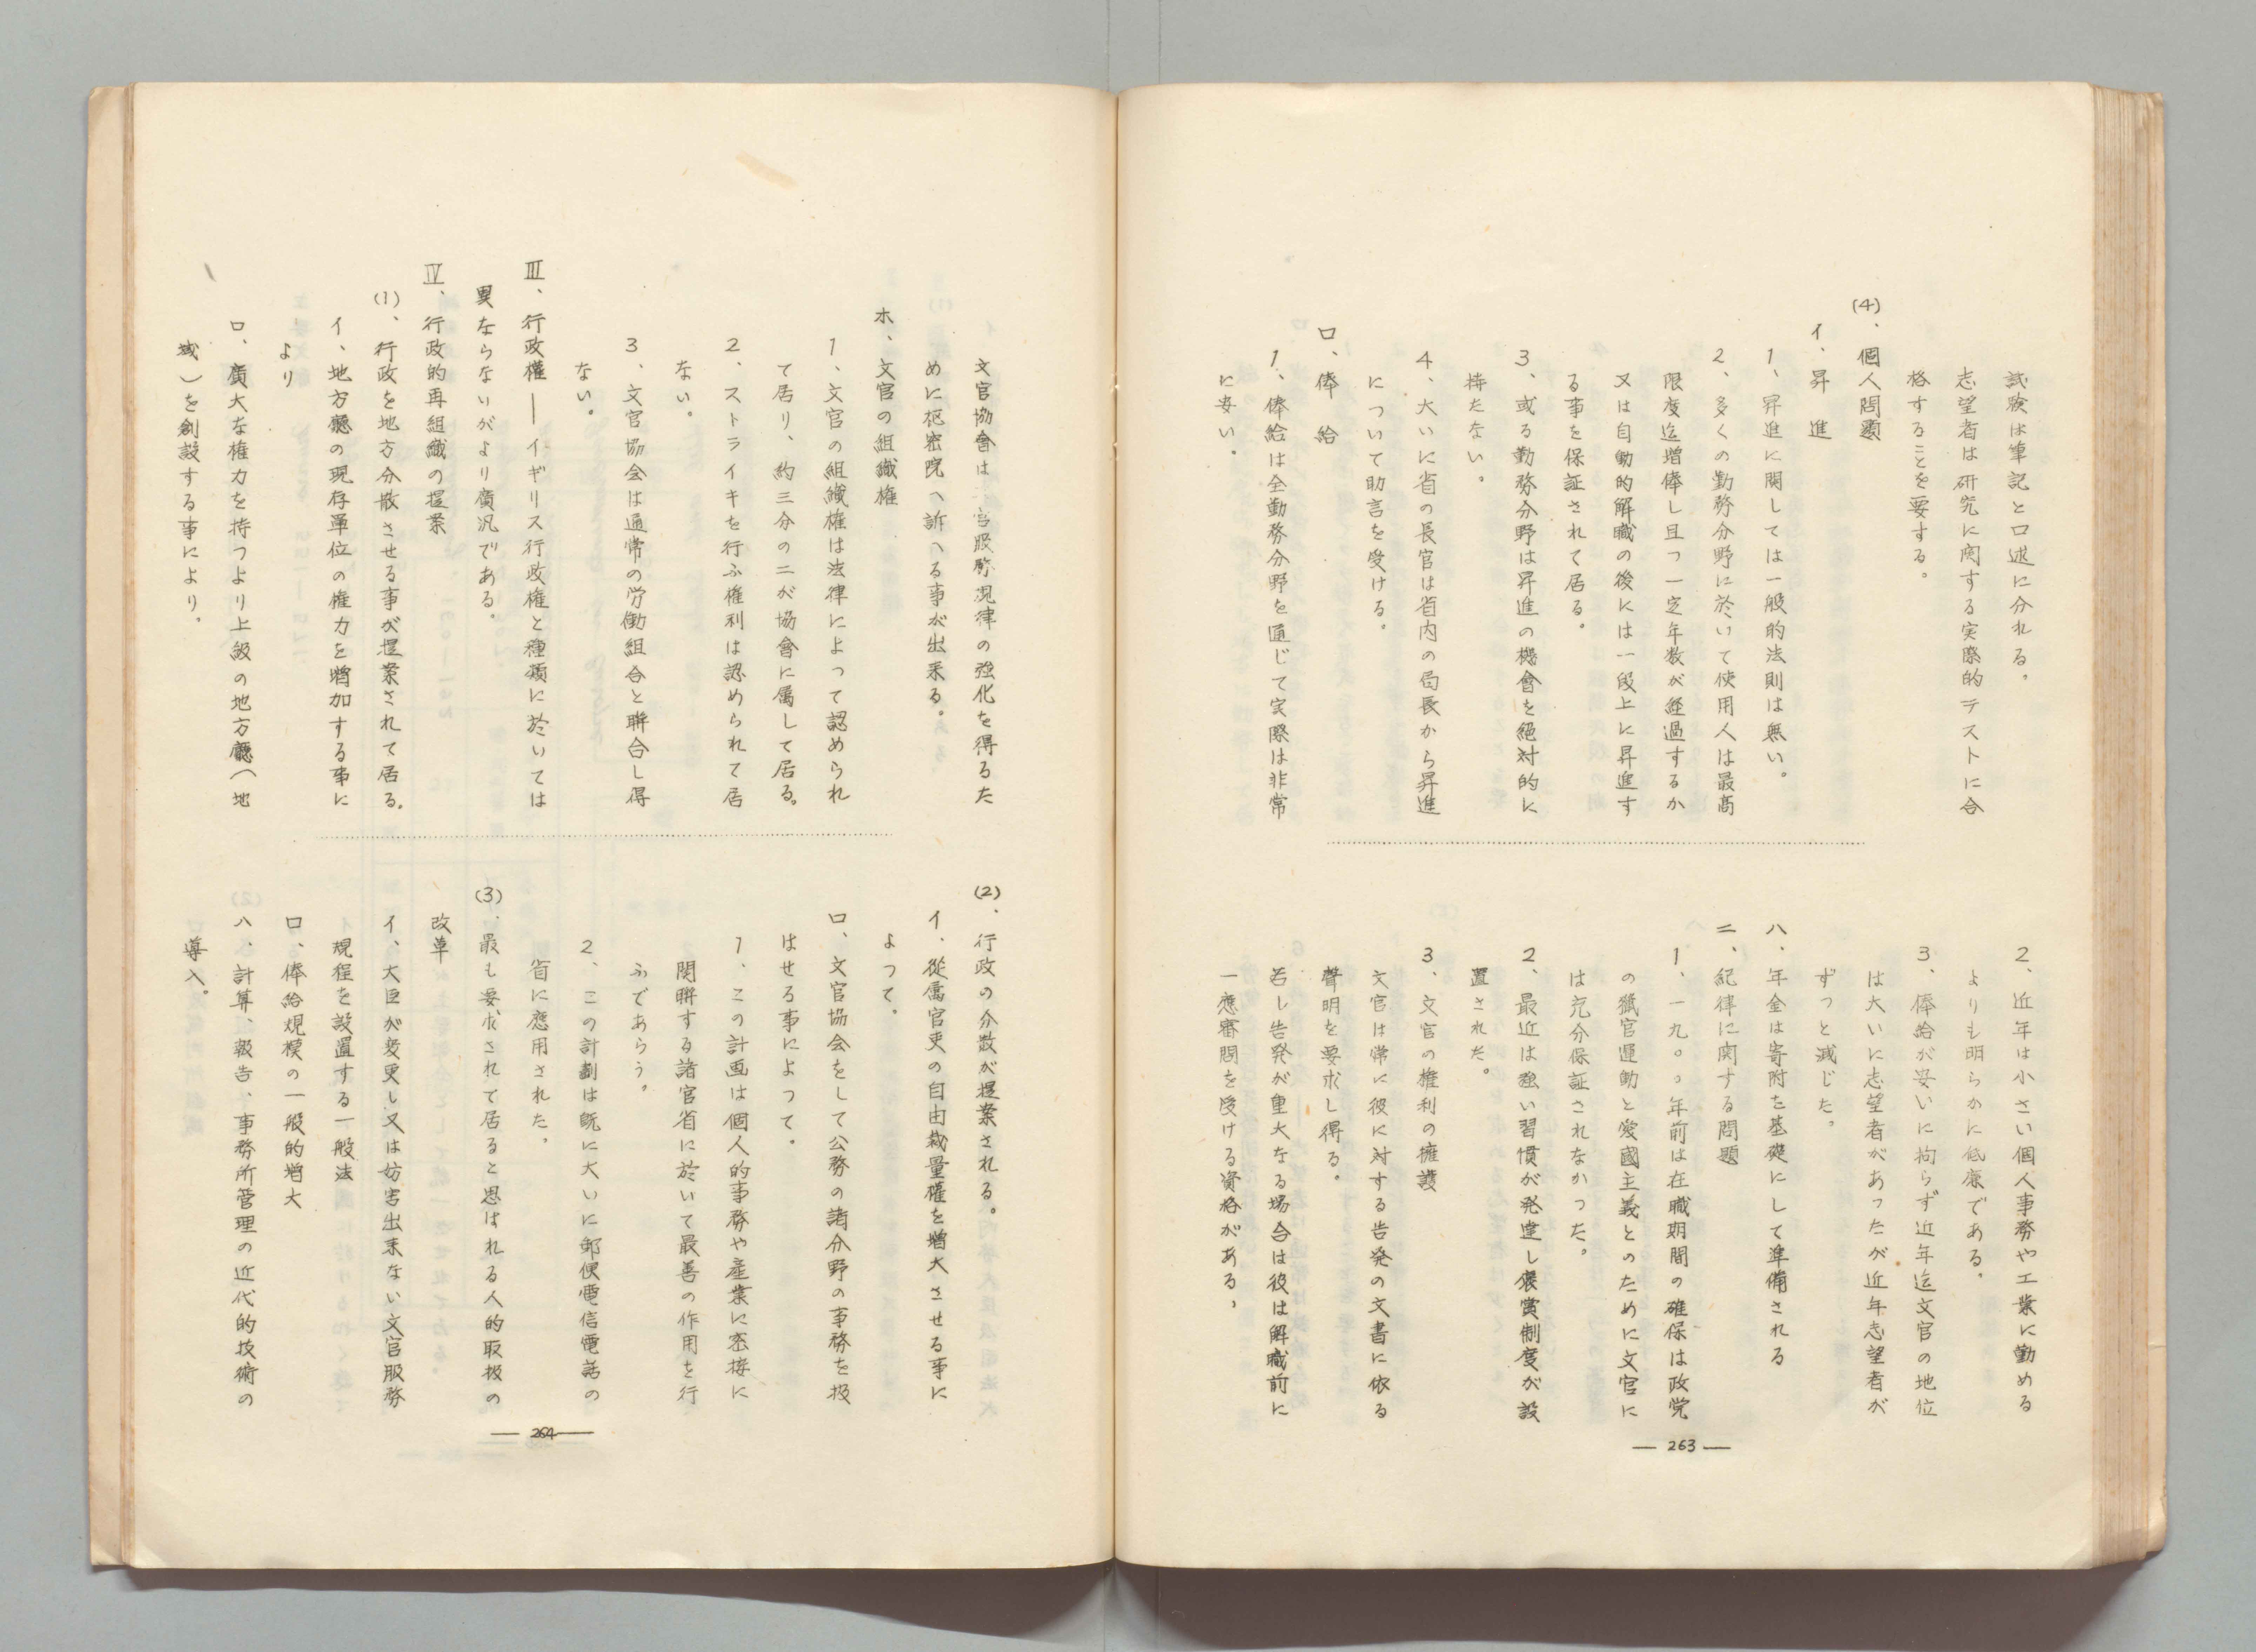 試験は筆記と口述に分れる。
志望者は研究に関する実際的テストに合
格することを要する。
(4)、個人問題
イ、昇進
1、昇進に関しては一般的法則は無い。
2、多くの勤務分野に於いて使用人は最高
限度迄増俸し且つ一定年数が経過するか
又は自動的解職の後には一段上に昇進す
る事を保証されて居る。
3、或る勤務分野は昇進の機會を絶対的に
持たない。
4、大いに省の長官は省内の局長から昇進
について助言を受ける。
ロ、俸給
1、俸給は全勤務分野を通じて実際は非常
に安い。
2、近年は小さい個人事務や工業に勤める
よりも明らかに低廉である。
3、俸給が安いに拘らず近年迄文官の地位
は大いに志望者があったが近年志望者が
ずつと減じた。
ハ、年金は寄附を基礎にして準備される
ニ、紀律に関する問題
1、一九〇〇年前は在職期間の確保は政党
の獵官運動と愛國主義とのために文官に
は充分保証されなかつた。
2、最近は強い習慣が発達し褒賞制度が設
置された。
3、文官の権利の擁護
文官は常に彼に対する告発の文書に依る
聲明を要求し得る。
若し告発が重大なる場合は彼は解職前に
一應審問を受ける資格がある、
— 263 —
文官協會は官服務規律の強化を得るた
めに枢密院へ訴へる事が出来る。
ホ、文官の組織権
1、文官の組織権は法律によって認められ
て居り、約三分の二が協會に属して居る。
2、ストライキを行ふ権利は認められて居
ない。
3、文官協会は通常の労働組合と聯合し得
ない。
Ⅲ、行政権——イギリス行政権と種類に於いては
異ならないがより廣汎である。
Ⅳ、行政的再組織の提案
(1)、行政を地方分散させる事が提案されて居る。
イ、地方廳の現存單位の権力を増加する事に
より
ロ、廣大な権力を持つより上級の地方廳(地
域)を創設する事により.
(2)、行政の分散が提案される。
イ、從属官吏の自由裁量権を増大させる事に
よつて.
ロ、文官協会をして公務の諸分野の事務を扱
はせる事によつて.
1、この計画は個人的事務や産業に密接に
関聯する諸官省に於いて最善の作用を行
ふであらう。
2、この計劃は既に大いに郵便電信電話の
省に應用された.
(3)、最も要求されて居ると思はれる人的取扱の
改革
イ、大臣が変更し又は妨害出来ない文官服務
規程を設置する一般法
ロ、俸給規模の一般的増大
ハ、計算、報告、事務所管理の近代的技術の
導入。
— 264 —